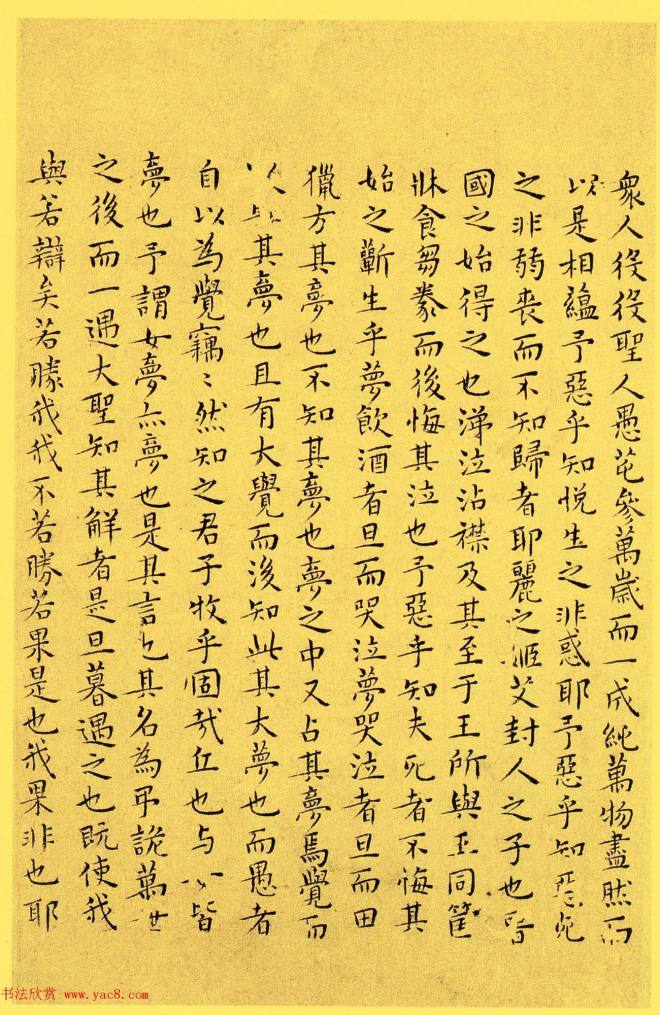 眾人役役聖人愚芚參萬歲而一成純萬物盡然而
以是相蘊予惡乎知悅生之非惑耶予惡乎知惡死
之非弱喪而不知歸者耶麗之姬艾封人之子也晉
國之始得之也涕泣沾襟及其至于王所與王同筐
牀食芻豢而後悔其泣也予惡乎知夫死者不悔其
始之蘄生乎夢飲酒者旦而哭泣夢哭泣者旦而田
獵方其夢也不知其夢也夢之中又占其夢焉覺而
其夢也且有大覺而後知此其大夢也而愚者
自以為覺竊〻然知之君子牧乎固哉丘也与女皆
夢也予謂女夢亦夢也是其言也其名為弔詭萬世
之後而一遇大聖知其解者是旦暮遇之也既使我
與若辯矣若勝我我不若勝若果是也我果非也耶
书法欣赏 www.yac8.com